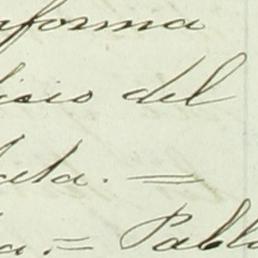 nforma
icio del
ata. =
a. = Pablo